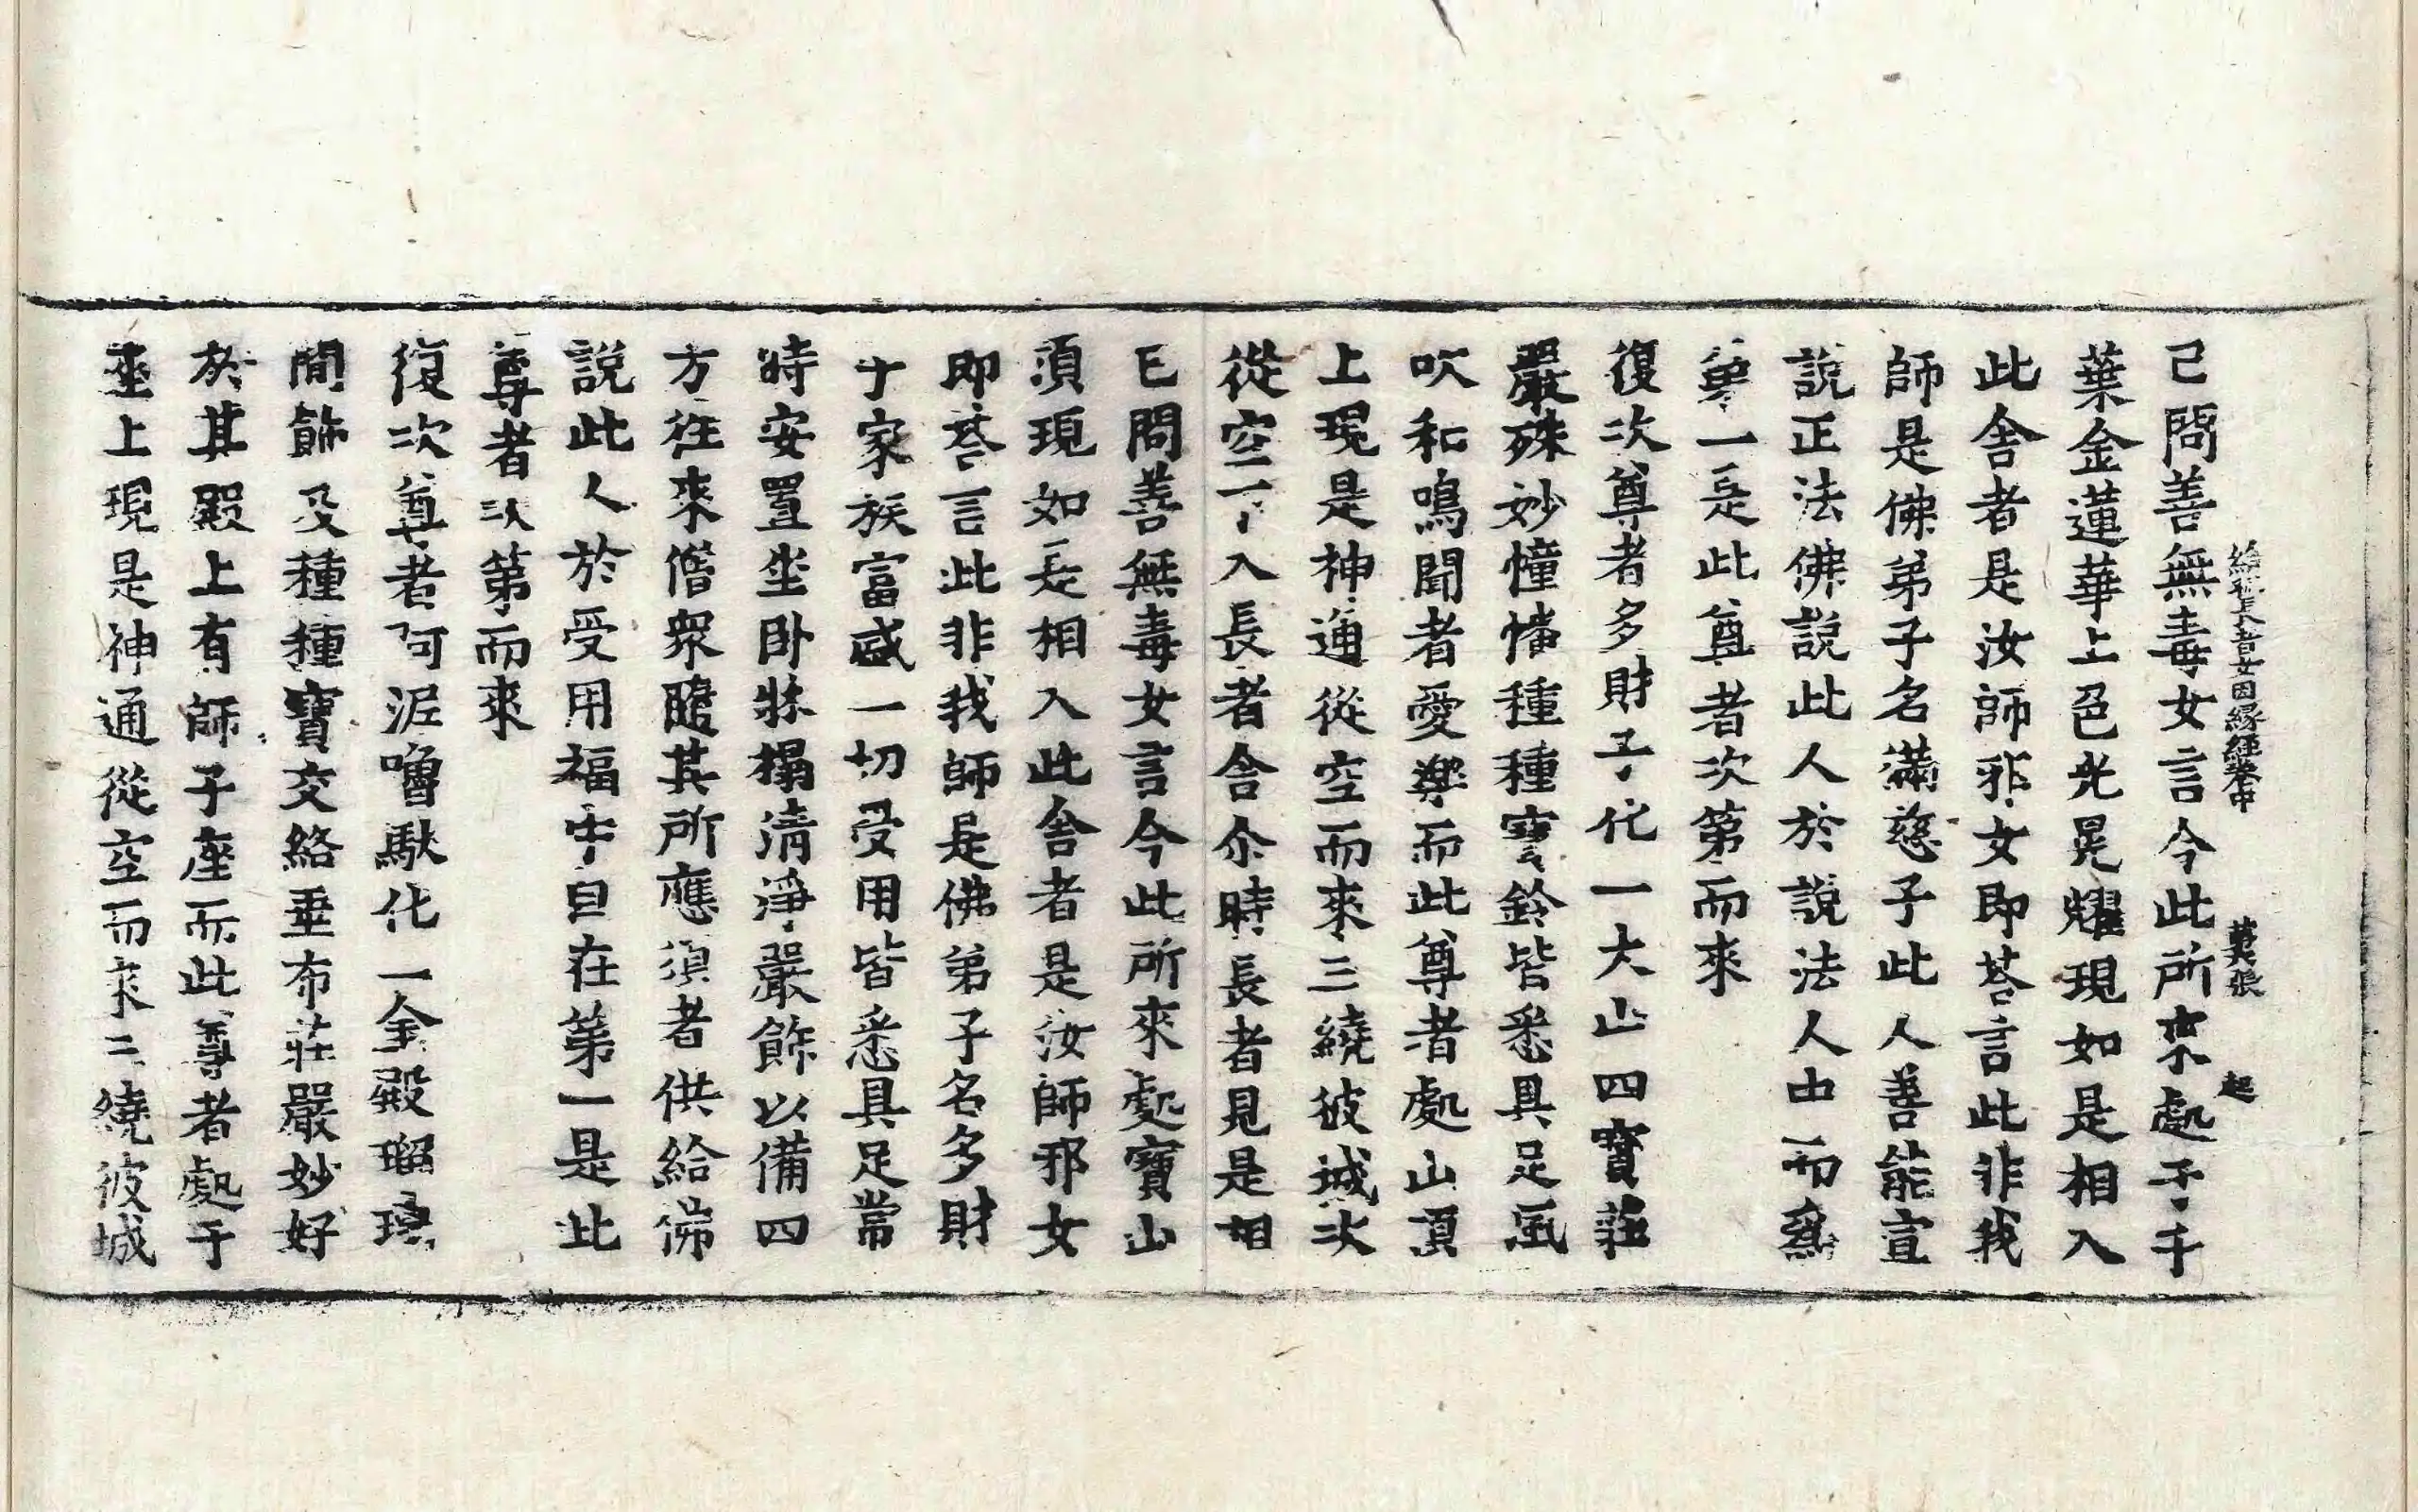 給孤長者女因緣經卷中 第六張 起
已問善無毒女言今此所來處于千
葉金蓮華上色光晃耀現如是相入
此舍者是汝師邪女即荅言此非我
師是佛弟子名滿慈子此人善能宣
說正法佛說此人於說法人中而爲
第一是此尊者次第而來
復次尊者多財子化一大山四寶莊
嚴殊妙幢幡種種寶鈴皆悉具足風
吹和鳴聞者愛樂而此尊者處山頂
上現是神通從空而來三繞彼城次
從空下入長者舍尒時長者見是相
已問善無毒女言今此所來處寶山
頂現如是相入此舍者是汝師邪女
即荅言此非我師是佛弟子名多財
于家族富盛一切受用皆悉具足常
時安置坐卧牀榻清淨嚴飾以備四
方往來僧衆隨其所應須者供給佛
說此人於受用福中自在第一是此
尊者次第而來
復次尊者阿泥嚕馱化一金殿瑠璃
間飾及種種寶交絡垂布莊嚴妙好
於其殿上有師子座而此尊者處于
座上現是神通從空而來三繞彼城